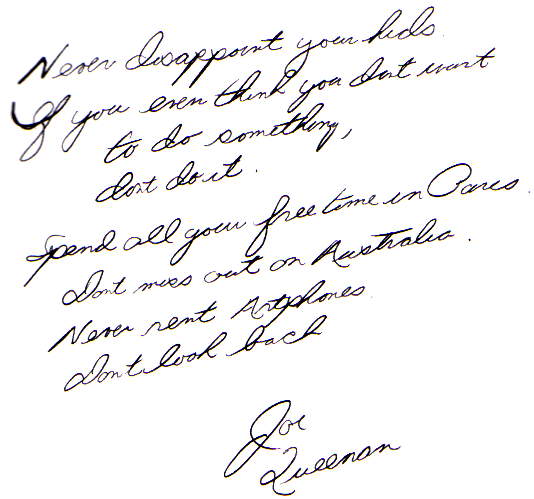 Never disappoint your kids.
If you even think you dont want
to do something,
dont do it.
Spend all your free time in Paris.
Dont miss out on Australia.
Never rent Artphones.
Dont look back
Joe
Queenan